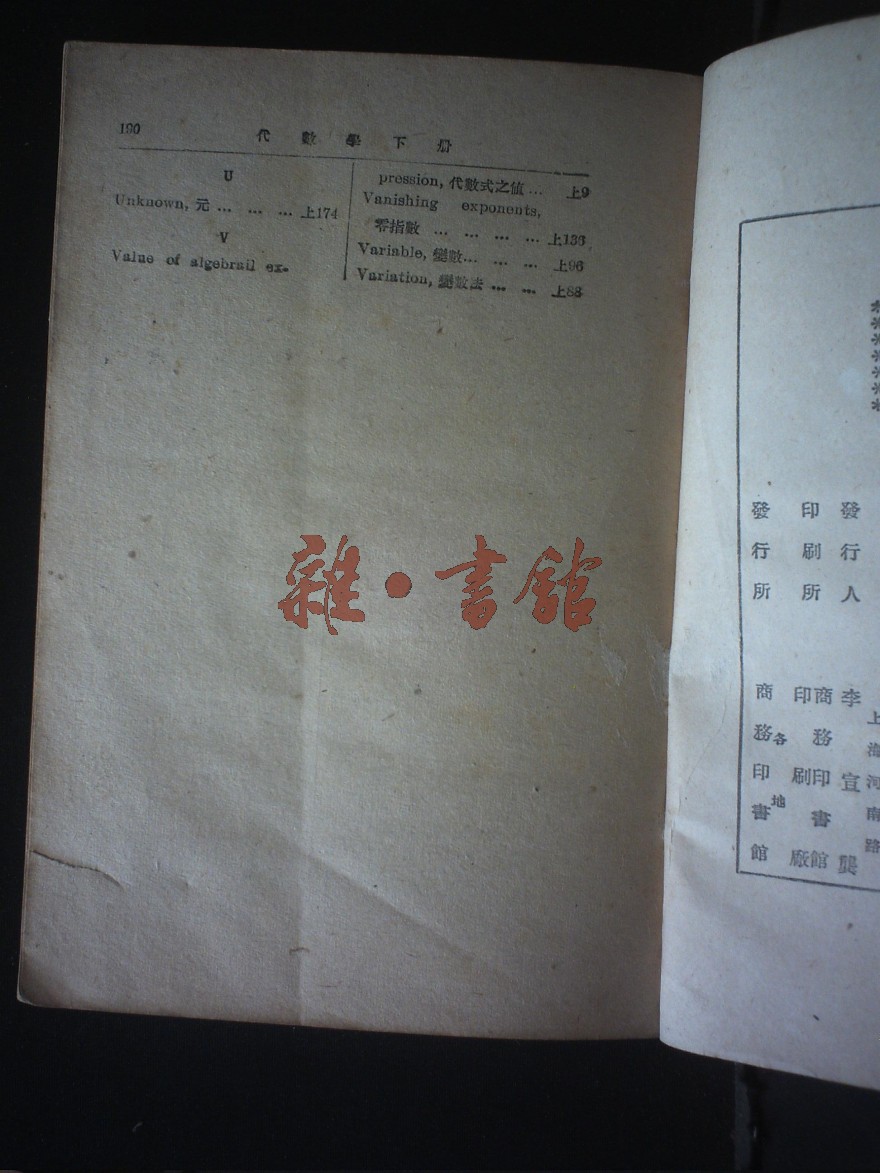 190
代數學下册
U
Unknown, 元 ... ... ... 上174
V
Value of algebrail ex-
pression, 代數式之值 ... 上9
Vanishing exponents,
零指數 ... ... ... ... 上136
Variable, 變數... ... ... 上96
Variation, 變數法 ... ... 上88
雜·書館
*******
上海河南路
發行人 李宣龔
印刷所 商務印書館
印刷廠
發行所 商務印書館
各地